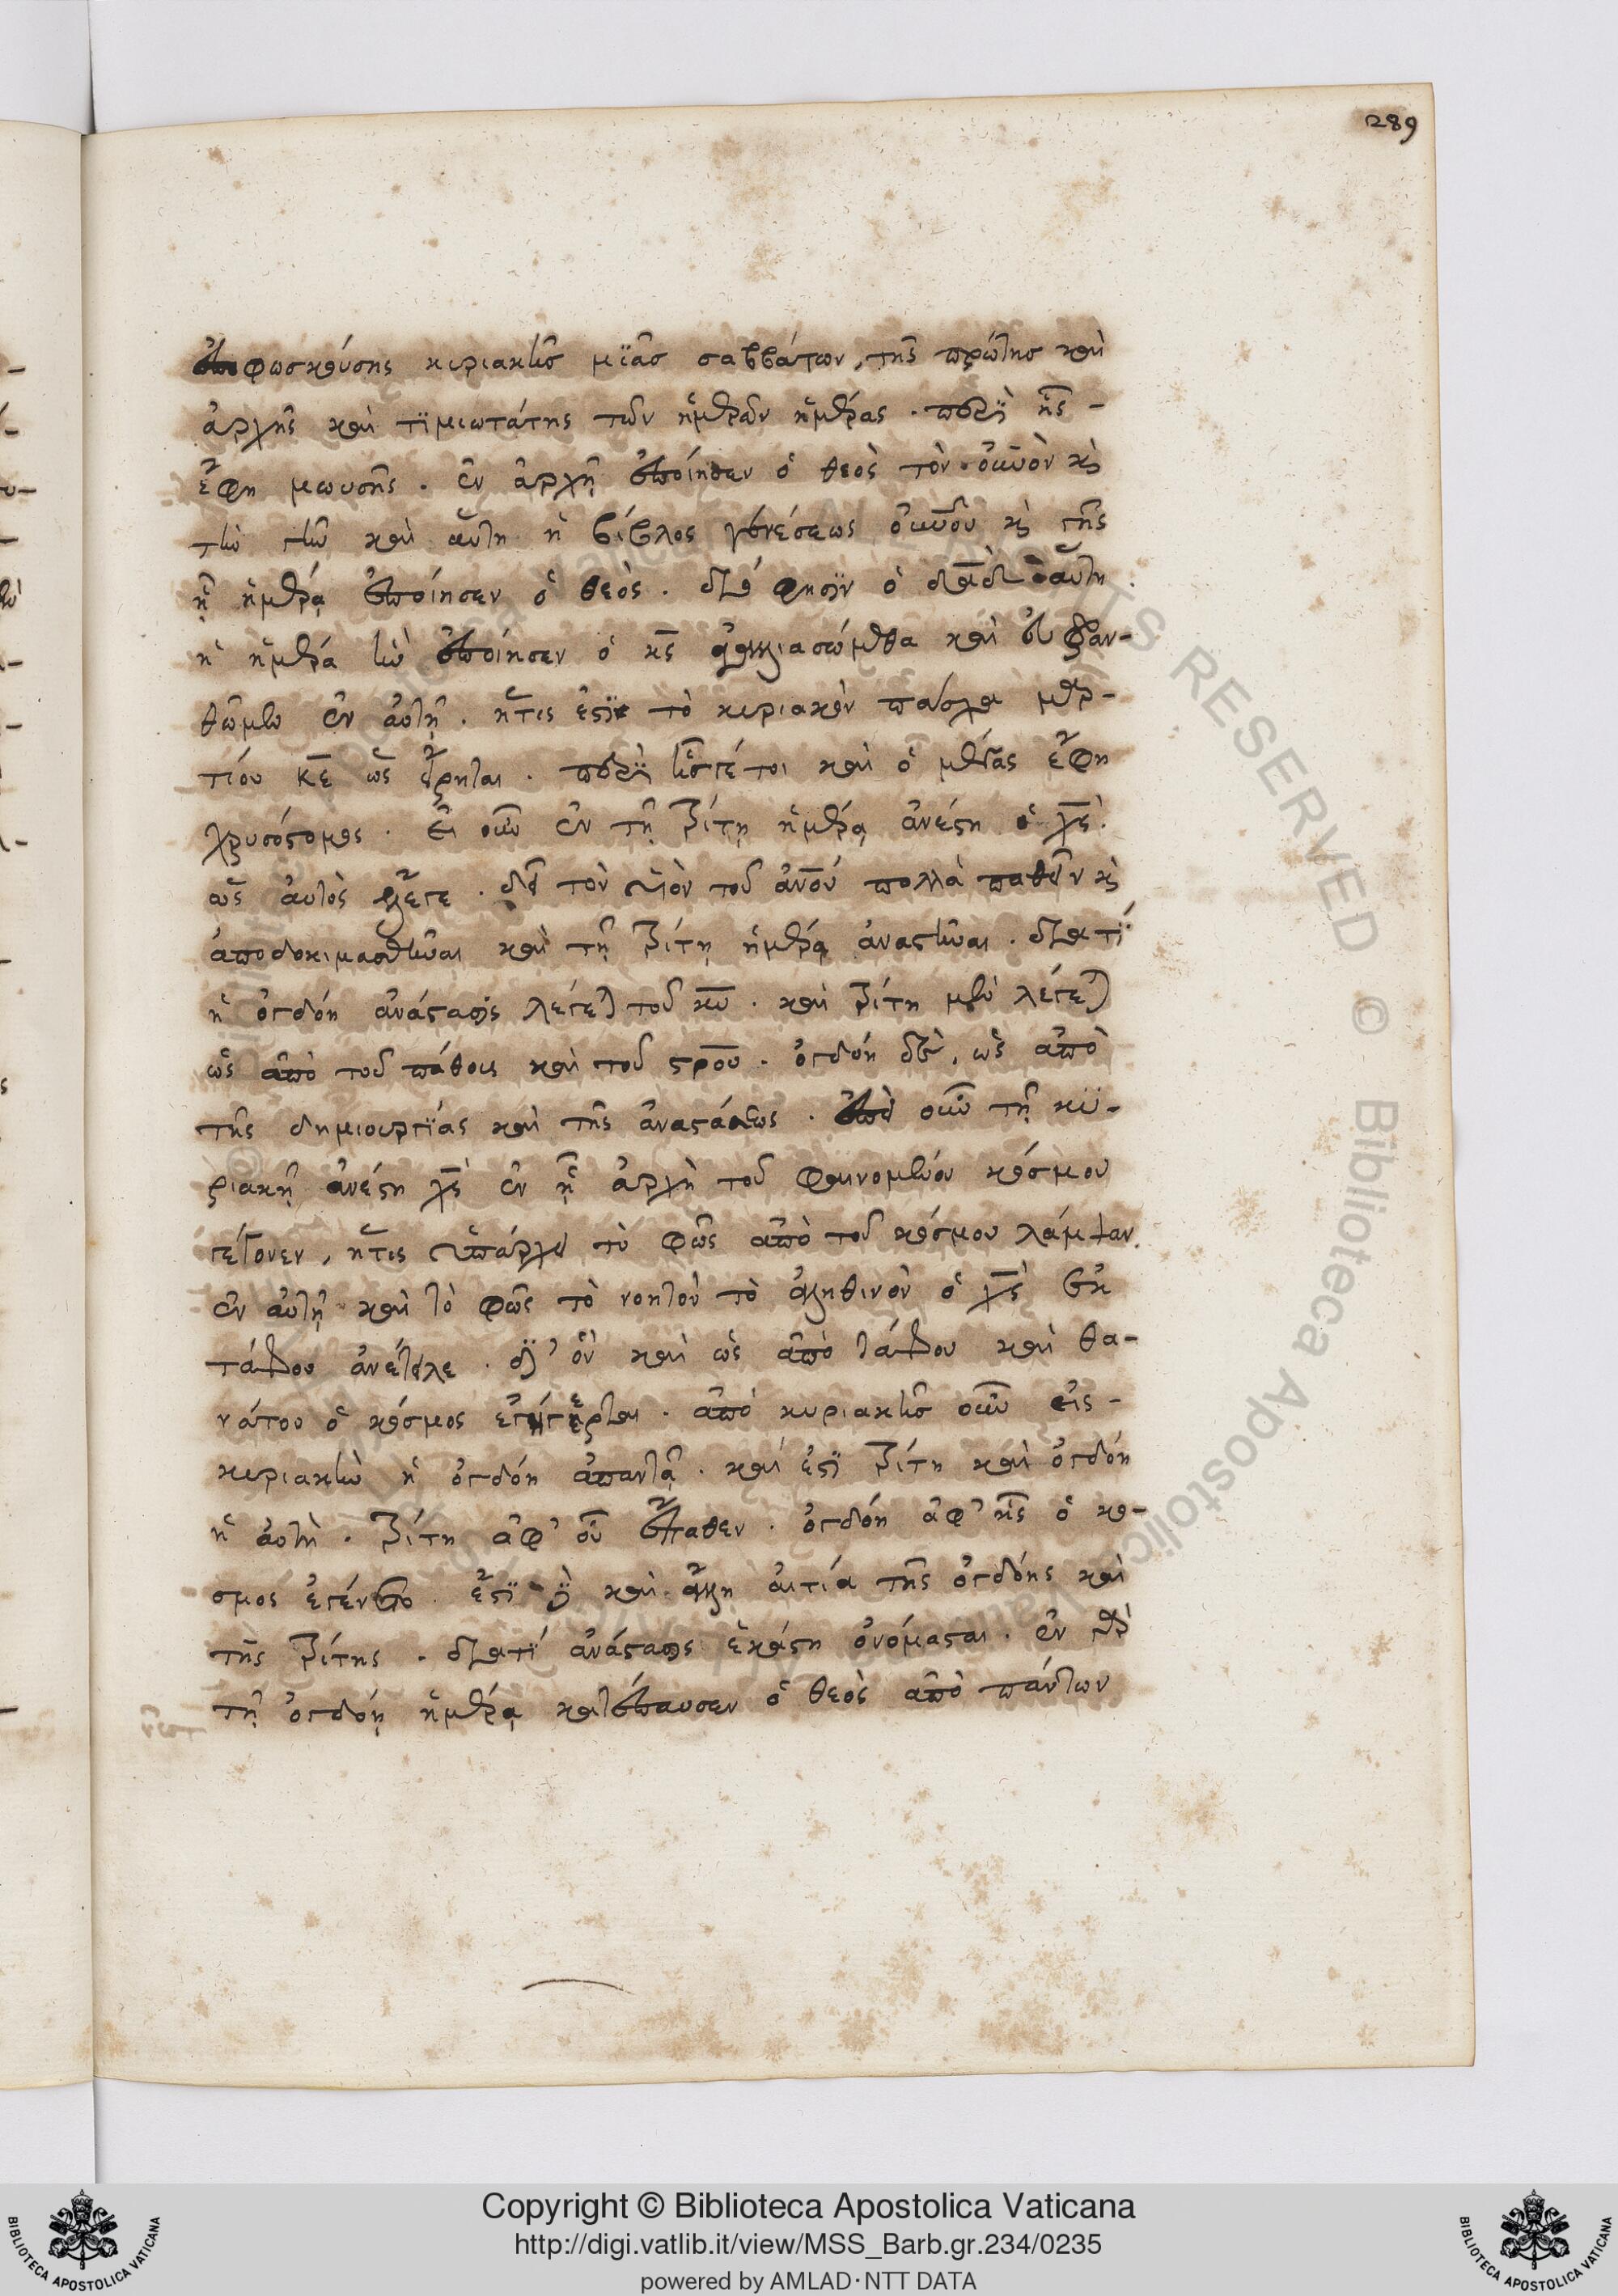 289
ἐπιφωσκούσης κυριακῆς μϊᾶς σαββάτων, τῆς πρώτης καὶ
ἀρχῆς καὶ τϊμιωτάτης τῶν ἡμερῶν ἡμέρας. περὶ ἧς
ἔφη μωυσῆς. ἐν ἀρχῇ ἐποίησεν ὁ θεὸς τὸν οὐνὸν κ̀
τὴν γῆν καὶ αὕτη ἡ βίβλος γενέσεως οὐνοῦ κ̀ γῆς
ᾗ ἡμέρᾳ ἐποίησεν ὁ θεός. διό φησϊν ὁ δαδ αὕτη
ἡ ἡμέρα ἣν ἐποίησεν ὁ κς ἀγαλλιασώμεθα καὶ εὐφραν-
θῶμεν ἐν αὐτῇ. ἥτις ἐστὶ τὸ κυριακὸν πάσχα μαρ-
τίου κε ὡς εἴρηται. περὶ ἧς γέ τοι καὶ ὁ μέγας ἔφη
χρυσόστομος. εἰ οὖν ἐν τῇ τρίτῃ ἡμέρᾳ ἀνέστη ὁ χς.
ὡς αὐτὸς ἔλεγε. δεῖ τὸν υἱὸν τοῦ ἀνου πολλὰ παθεῖν κ̀
ἀποδοκιμασθῆναι καὶ τῇ τρίτῃ ἡμέρᾳ ἀναστῆναι. διατϊ
ἡ ὀγδόη ἀνάστασις λέγεται τοῦ κυ. καὶ τρίτη μὲν λέγεται
ὡς ἀπὸ τοῦ πάθους καὶ τοῦ στρου. ὀγδόη δὲ, ὡς ἀπὸ
τῆς δημιουργϊας καὶ τῆς ἀναστάσεως. ἐπεὶ οὖν τῇ κυ-
ριακῇ ἀνέστη χς ἐν ᾗ ἀρχὴ τοῦ φαινομένου κόσμου
γέγονεν, ἥτις ὑπάρχει τὸ φῶς ἀπὸ τοῦ κόσμου λάμψαν.
ἐν αὐτῇ καὶ τὸ φῶς τὸ νοητὸν τὸ ἀληθινὸν ὁ χς ἐκ
τάφου ἀνέτειλε. δι’ ὃν καὶ ὡς ἀπὸ τάφου καὶ θα-
νάτου ὁ κόσμος ἐγήγερται. ἀπὸ κυριακῆς οὖν εἰς
κυριακὴν ἡ ὀγδόη ἀπαντᾷ. καὶ ἐστὶ τρίτη καὶ ὀγδόη
ἡ αὐτή. τρίτη ἀφ’ οὗ ἔπαθεν. ὀγδόη ἀφ’ ἧς ὁ κό-
σμος ἐγένετο. ἔστϊ δὲ καὶ ἄλλη αἰτία τῆς ὀγδόης καὶ
τῆς τρίτης. διατϊ ἀνάστασις ἑκάστη ὀνόμασται. ἐν γὰρ
τῇ ὀγδόῃ ἡμέρᾳ κατέπαυσεν ὁ θεὸς ἀπὸ πάντων
Copyright © Biblioteca Apostolica Vaticana
http://digi.vatlib.it/view/MSS_Barb.gr.234/0235
powered by AMLAD·NTT DATA